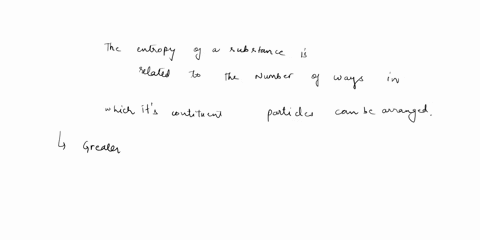 The entropy of a substance is
related to the number of ways in
which it's contituent particles can be arranged.
↳ Greater